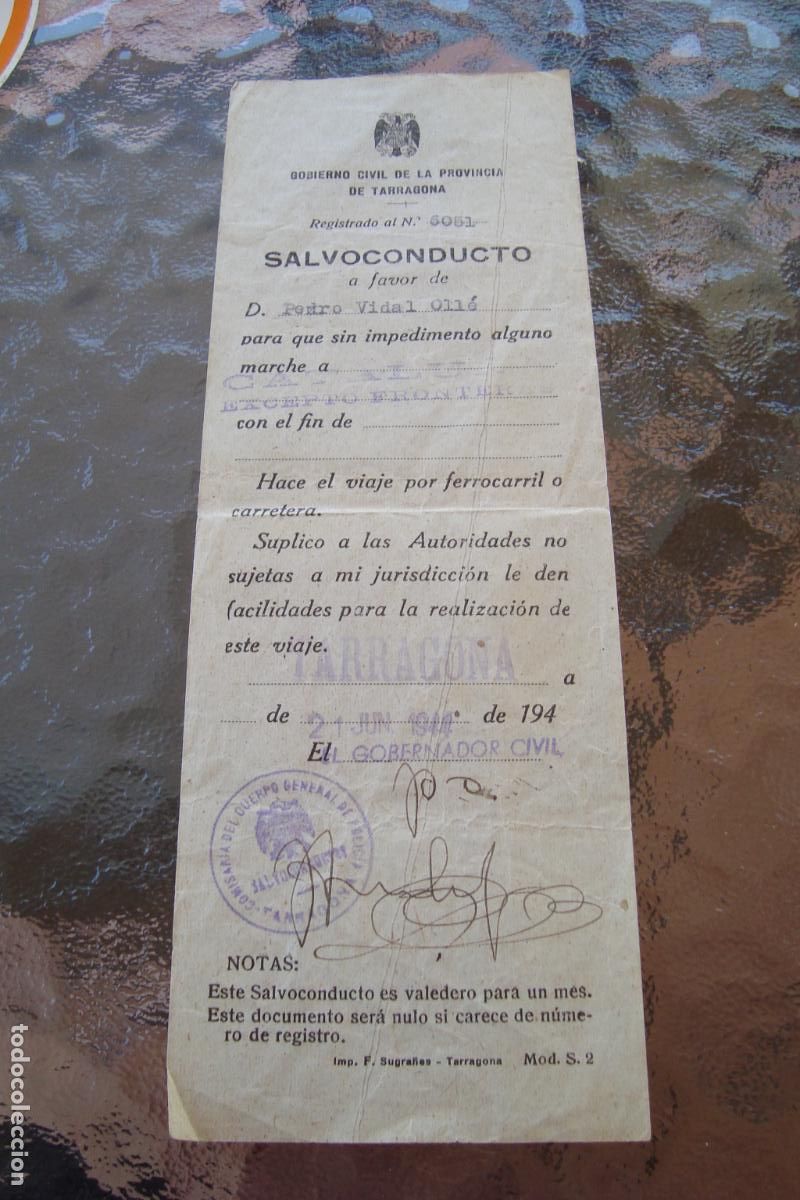 GOBIERNO CIVIL DE LA PROVINCIA
DE TARRAGONA
Registrado al N.º 6051
SALVOCONDUCTO
a favor de
D. Pedro Vidal Ollé
para que sin impedimento alguno
marche a
EXCEPTO FRONTERAS
con el fin de
Hace el viaje por ferrocarril o
carretera.
Suplico a las Autoridades no
sujetas a mi jurisdicción le den
facilidades para la realización de
este viaje.
TARRAGONA
a
de 21 JUN. 1944 de 194
El EL GOBERNADOR CIVIL
COMISARIA DEL CUERPO GENERAL DE POLICIA
SALVOCONDUCTOS
TARRAGONA
NOTAS:
Este Salvoconducto es valedero para un mes.
Este documento será nulo si carece de núme-
ro de registro.
Imp. F. Sugrañes - Tarragona Mod. S. 2
todocoleccion